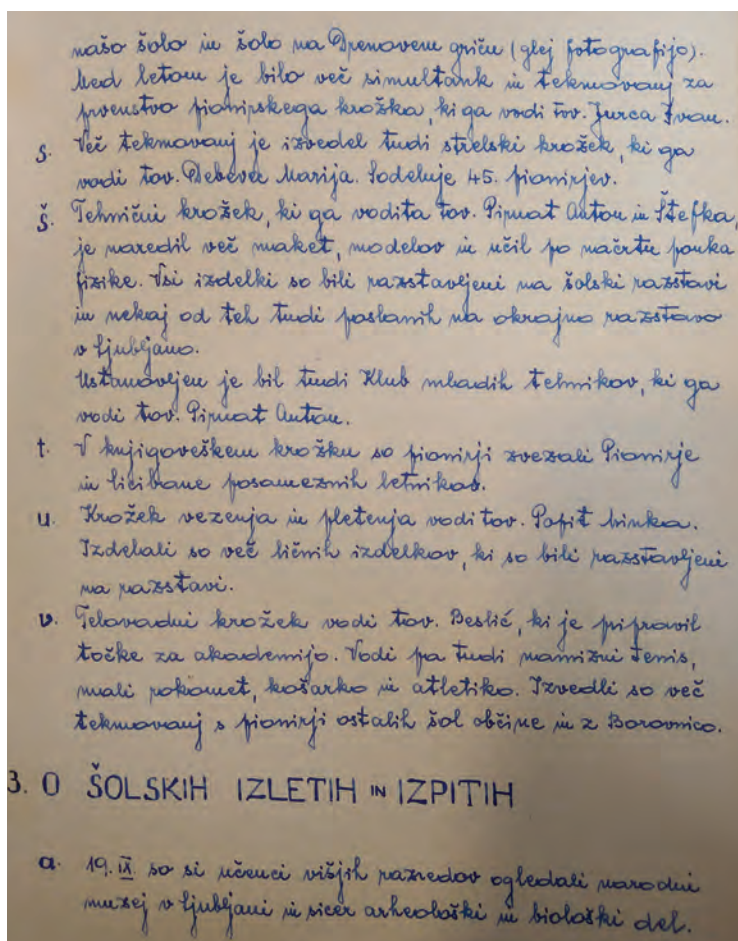 našo šolo in šolo na Drenovem griču (glej fotografijo).
Med letom je bilo več simultank in tekmovanj za
prvenstvo pionirskega krožka, ki ga vodi tov. Jurca Ivan.
s. Več tekmovanj je izvedel tudi strelski krožek, ki ga
vodi tov. Debevec Marija. Sodeluje 45. pionirjev.
š. Tehnični krožek, ki ga vodita tov. Pirnat Anton in Štefka,
je naredil več maket, modelov in učil po načrtu pouka
fizike. Vsi izdelki so bili razstavljeni na šolski razstavi
in nekaj od teh tudi poslanih na okrajno razstavo
v Ljubljano.
Ustanovljen je bil tudi Klub mladih tehnikov, ki ga
vodi tov. Pirnat Anton.
t. V knjigoveškem krožku so pionirji zvezali Pionirje
in Cicibane posameznih letnikov.
u. Krožek vezenja in pletenja vodi tov. Popit Minka.
Izdelali so več ličnih izdelkov, ki so bili razstavljeni
na razstavi.
v. Telovadni krožek vodi tov. Beslić, ki je pripravil
točke za akademijo. Vodi pa tudi namizni tenis,
mali rokomet, košarko in atletiko. Izvedli so več
tekmovanj s pionirji ostalih šol občine in z Borovnico.
3. O ŠOLSKIH IZLETIH IN IZPITIH
a. 19. IX. so si učenci višjih razredov ogledali narodni
muzej v Ljubljani in sicer arheološki in biološki del.